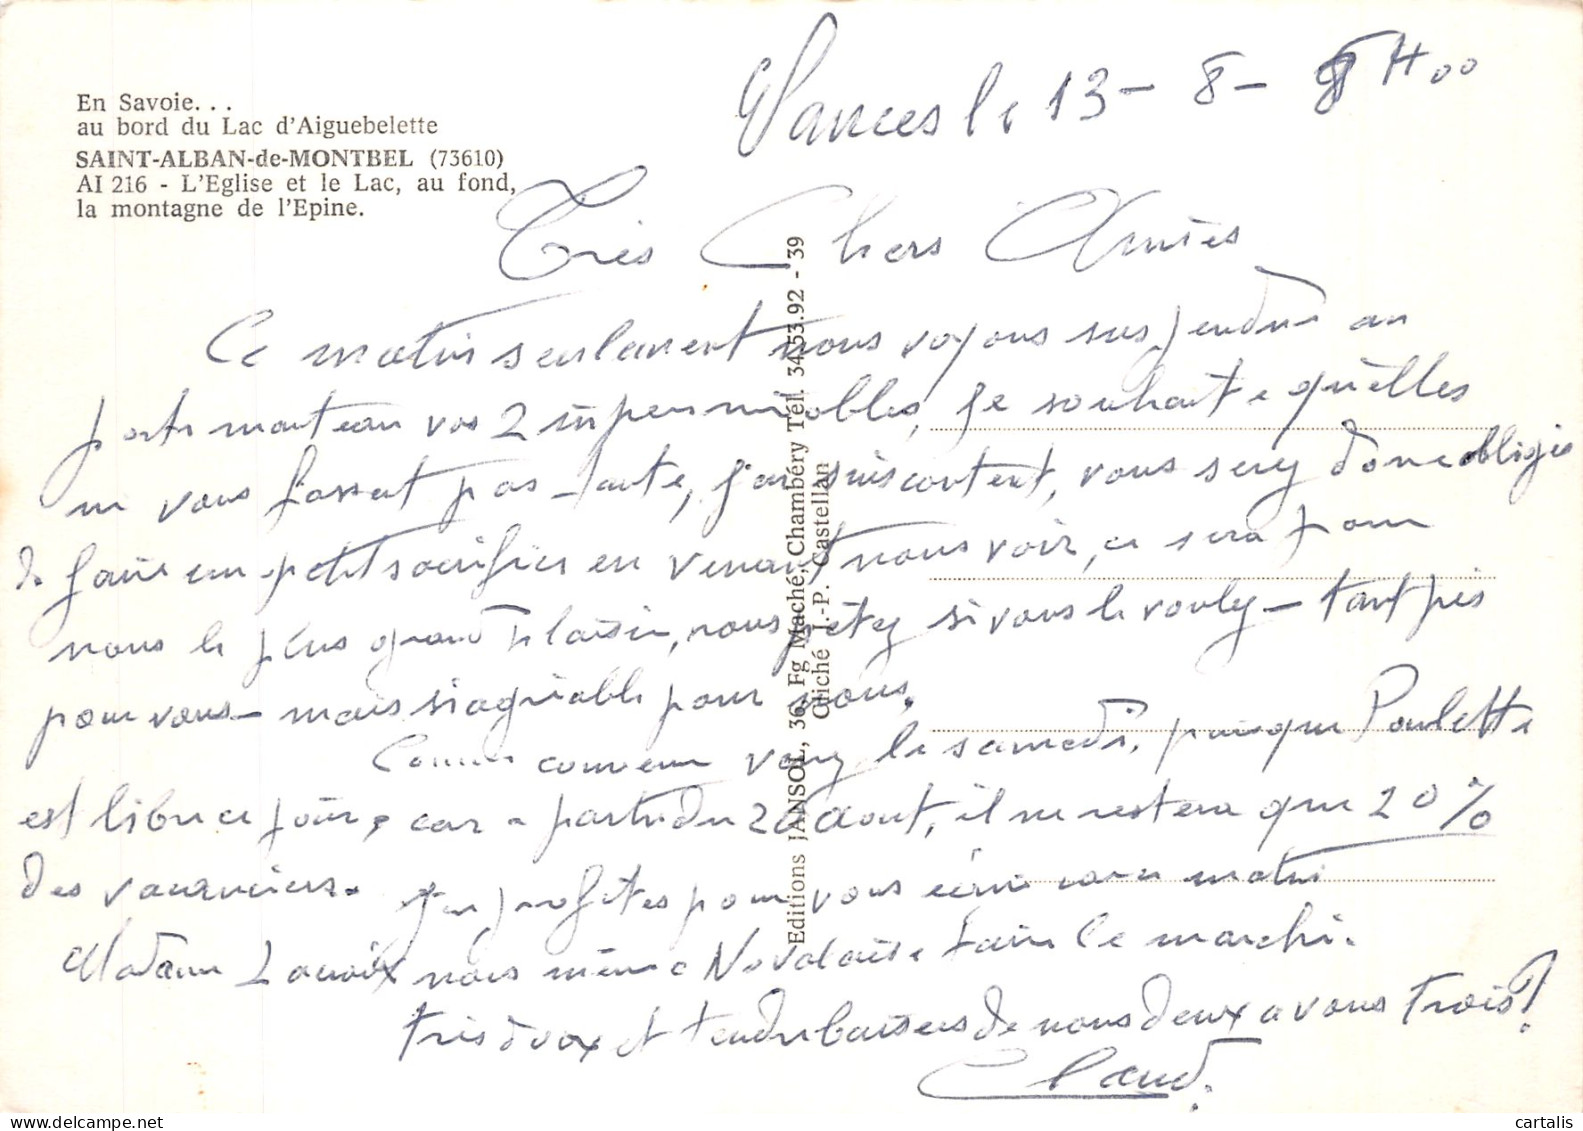 En Savoie...
au bord du Lac d'Aiguebelette
SAINT-ALBAN-de-MONTBEL (73610)
AI 216 - L'Eglise et le Lac, au fond,
la montagne de l'Epine.
Vances le 13-8- 8H00
Très Chers Amies
Ce matin seulement nous voyons suspendue au
porte manteau vos 2 imperméables, je souhaite qu'elles
ne vous fassent pas faute, j'en suis content, vous serez donc obligés
de faire un petit sacrifice en venant nous voir, ce sera pour
nous le plus grand plaisir, vous pétez si vous le voulez - tant pis
pour vous - mais si agréable pour nous.
Comme convenu venez le samedi, puisque Poulette
est libre ce jour, car a partir du 20 Aout, il ne restera que 20%
des vacanciers. J'en profites pour vous écrire car ce matin
Madame Lacroix nous mène a Novalaise faire le marché.
très doux et tendre baisers de nous deux a vous trois!
Claud.
Editions JANSOL, 36, Fg Maché, Chambéry Tél. 34.53.92 - 39
Cliché J.-P. Castellan
cartalis.com